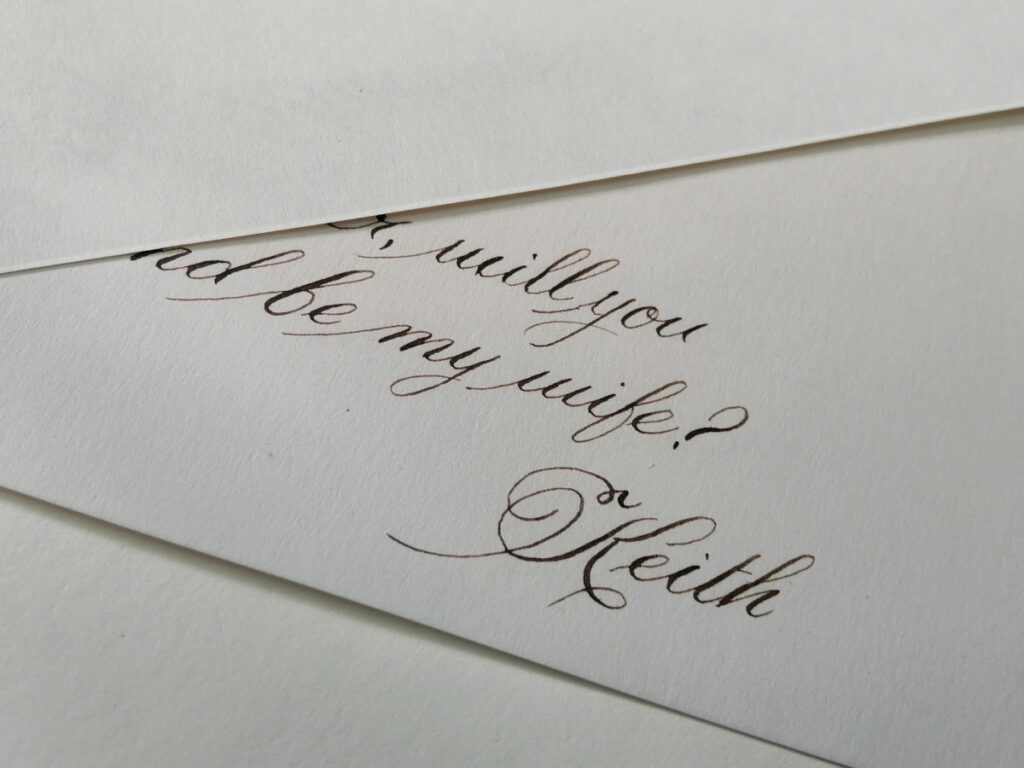 , will you
nd be my wife?
Keith